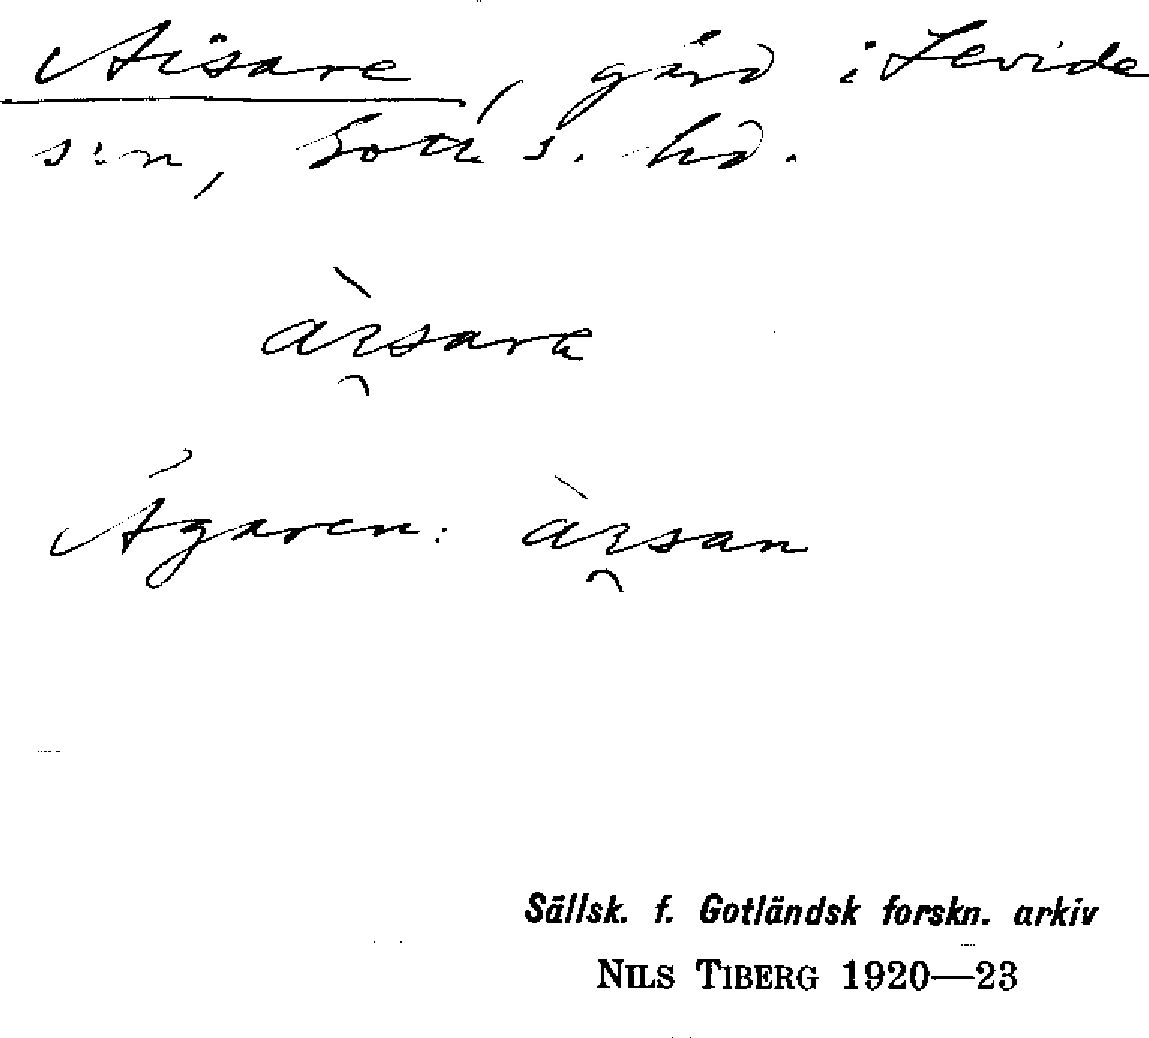 Aisare, gård i Levide
s:n, Gotl. s. hd.
àı̯sarɛ
Ägaren: àı̯san
Sällsk. f. Gotländsk forskn. arkiv
NILS TIBERG 1920—23